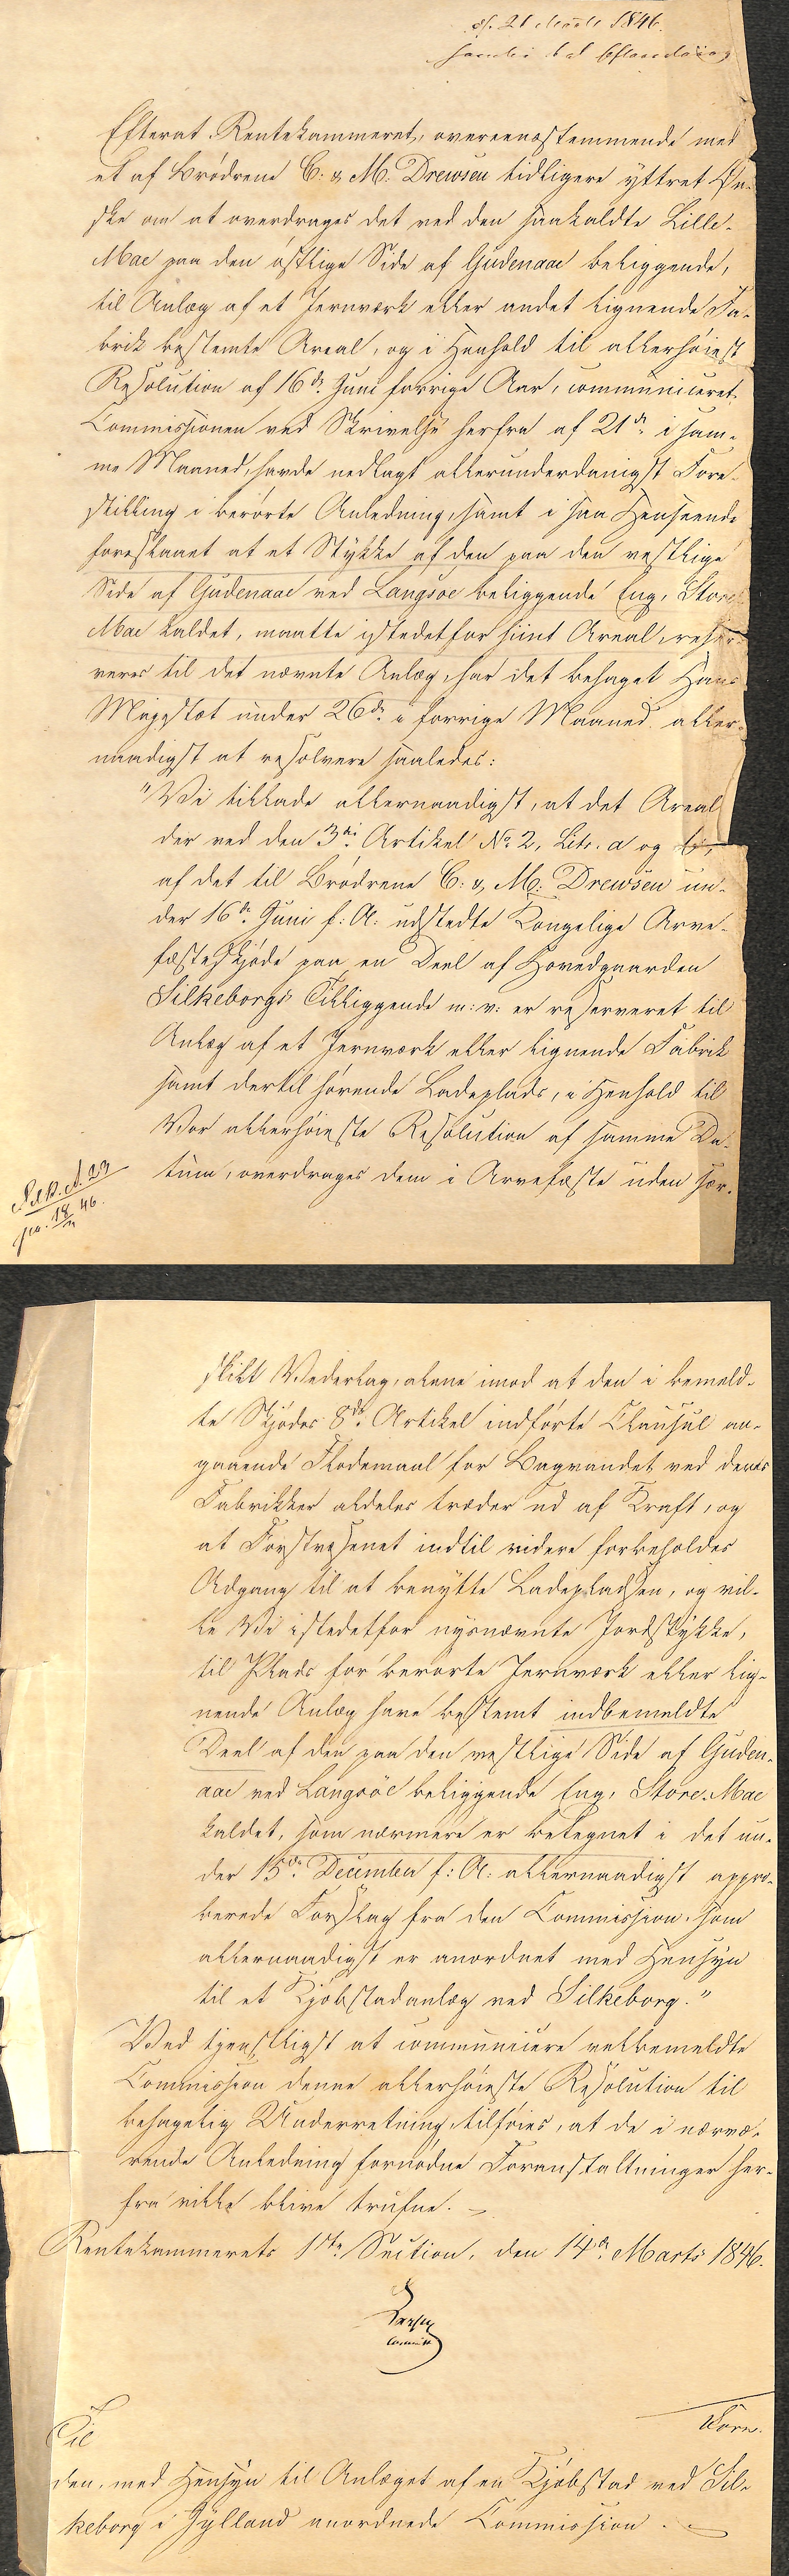 d. 21 Marts 1846.
Efterat Rentekammeret, overeensstemmende med
et af Brødrene C: & M: Drewsen tidligere yttret Øn-
ske om at overdrages det ved den saakaldte Lille-
Mae paa den østlige Side af Gudenaae beliggende,
til Anlæg af et Jernværk eller andet lignende Fa-
brik bestemte Areal, og i Henhold til allerhøiest
Resolution af 16de Juni forrige Aar, communiceret
Commissionen ved Skrivelse herfra af 21de i sam-
me Maaned, havde nedlagt allerunderdanigst Fore-
stilling i berørte Anledning, samt i saa Henseende
foreslaaet at et Stykke af den paa den vestlige
Side af Gudenaae ved Langsøe beliggende Eng, Store
Mae kaldet, maatte istedetfor hiint Areal, reser-
veres til det nævnte Anlæg, har det behaget Hans
Majestæt under 26de i forrige Maaned aller-
naadigst at resolvere saaledes:
"Vi tillade allernaadigst, at det Areal
der ved den 3die Artikel No 2, Litr. a og b,
af det til Brødrene C: & M: Drewsen un-
der 16de Juni f: A: udstedte Kongelige Arve-
fæsteskjøde paa en Deel af Hovedgaarden
Silkeborgs Tilliggende m: v: er reserveret til
Anlæg af et Jernværk eller lignende Fabrik
samt dertil hørende Ladeplads, i Henhold til
Vor allerhøieste Resolution af samme Da-
tum, overdrages dem i Arvefæste uden sær-
skilt Vederlag, alene imod at den i bemeld-
te Skjødes 8de Artikel indførte Clausul an-
gaaende Flodemaal for Bagvandet ved deres
Fabrikker aldeles træder ud af Kraft, og
at Forstvæsenet indtil videre forbeholdes
Adgang til at benytte Ladepladsen, og vil-
le Vi istedetfor nysnævnte Jordstykke,
til Plads for berørte Jernværk eller lig-
nende Anlæg have bestemt indbemeldte
Deel af den paa den vestlige Side af Guden-
aae ved Langsöe beliggende Eng, Store-Mae
kaldet, som nærmere er betegnet i det un-
der 15de December f: A: allernaadigst appro-
berede Forslag fra den Commission, som
allernaadigst er anordnet med Hensyn
til et Kjøbstadanlæg ved Silkeborg."
Ved tjenstligst at communicere velbemeldte
Commission denne allerhøieste Resolution til
behagelig Underretning, tilføies, at de i nærvæ-
rende Anledning fornødne Foranstaltninger her-
fra ville blive trufne.
Rentekammerets 1ste Section, den 14de Marts 1846.
Til
den, med Hensyn til Anlæget af en Kjøbstad ved Sil-
keborg i Jylland anordnede Commission.